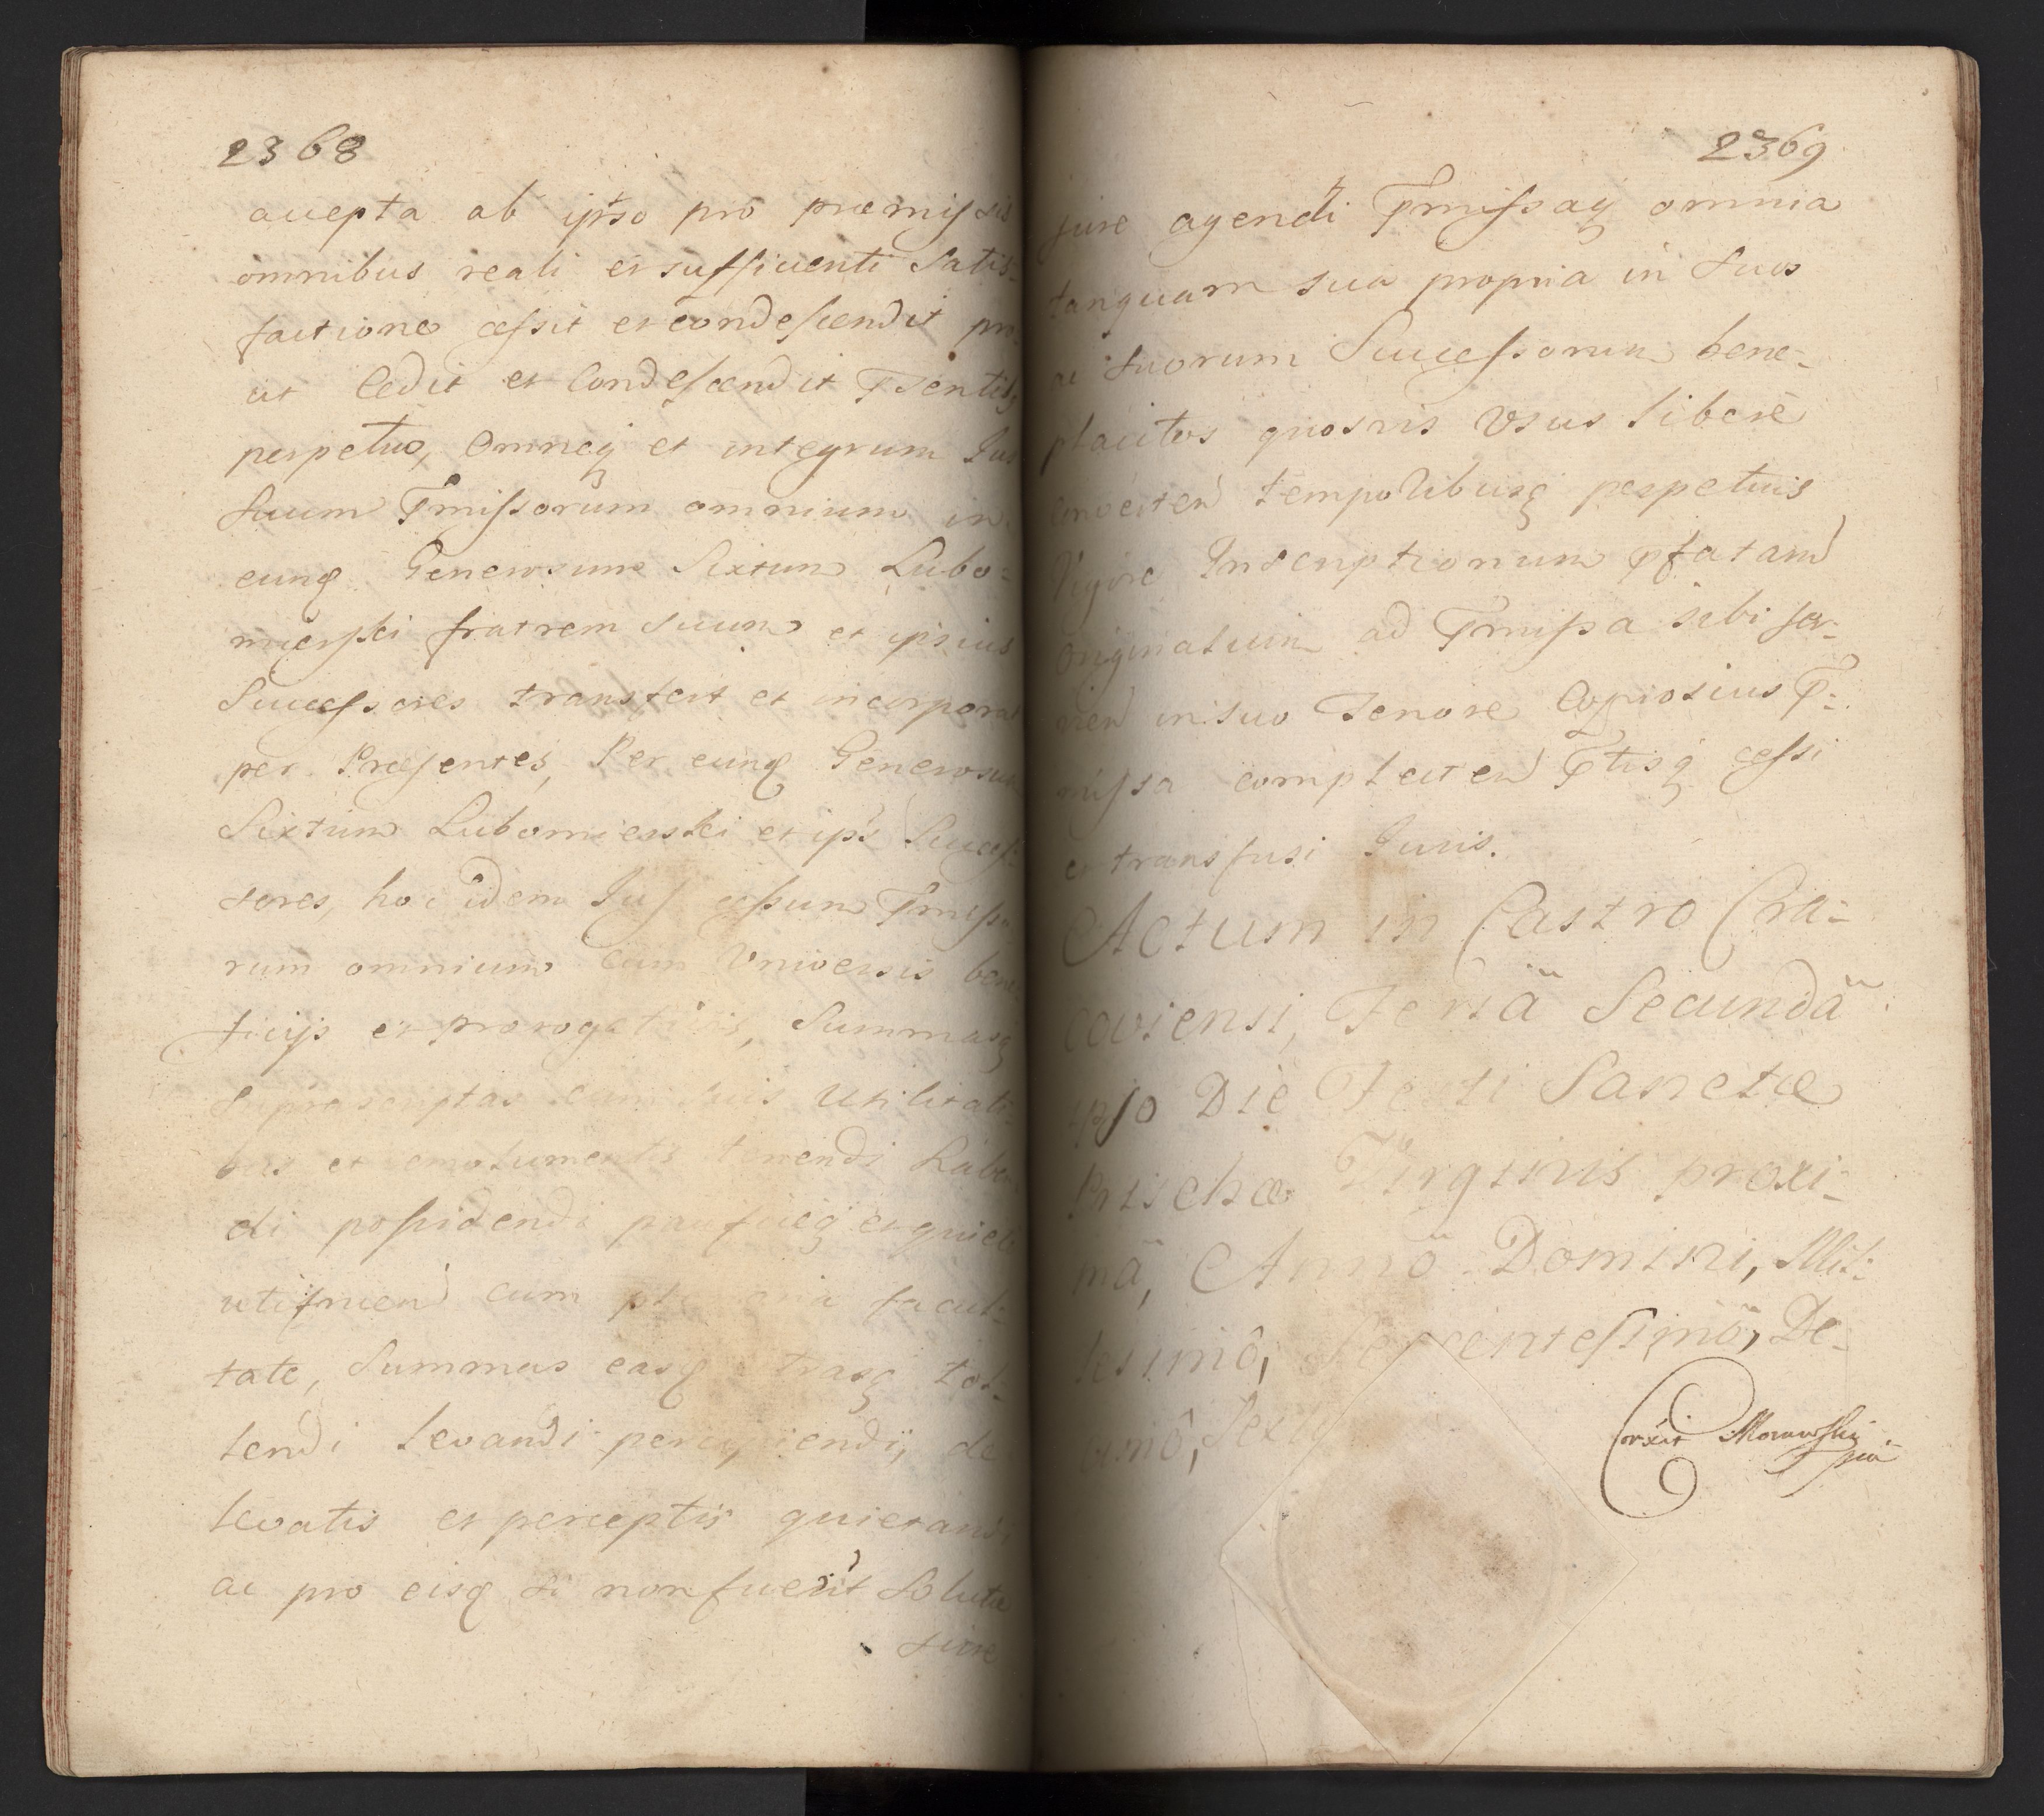 2368
accepta ab ipso pro præmissis
omnibus reali et sufficienti Satis-
factione cessit et condescendit pro
ut Cedit et Condescendit Psentibq
perpetuo, Omneq et integrum Jus
Suum Pmissorum omnium in
eunq Generosum Sixtum Lubo-
mierski fratrem Suum et ipsius
Successores transfert et incorporat
per Præsentes, Per eunq Generosum
Sixtum Lubomierski et ips Succes-
sores, hoc idem Jus cessum Pmisso-
rum omnium cum Universis bene-
ficijs et prærogativis, Summasq
Suprascriptas cum suis Utilitati-
bus et emolumentis tenendi habe-
di possidendi pacificeq et quiete
utifruend cum plenaria facul-
tate, Summas easq tol-
lendi levandi percipiendij, de
levatis et perceptis quietand,
ac pro eisq si non fuerit Solutæ
Jure
2369
Jure agendi Pmissaq omnia
tanquam sua propria in Suos
ac Suorum Successorum bene-
placitos quosvis Usus libere
convertend temporibusq perpetuis
Vigore Inscriptionum pfatam
Originalium ad Pmissa sibi ser-
vien in suo Tenore Copiosius P-
missa complecten Ptisq cessi
et transfusi Juris.
Actum in Castro Cra-
coviensi, Feriâ Secundâ
ipso Die Festi Sanctæ
Prischæ Virginis proxi-
mâ, Annô Domini, Mil-
lesimô, Septentesimô, De-
cimô, Sexto
Corxit Morawski
mp